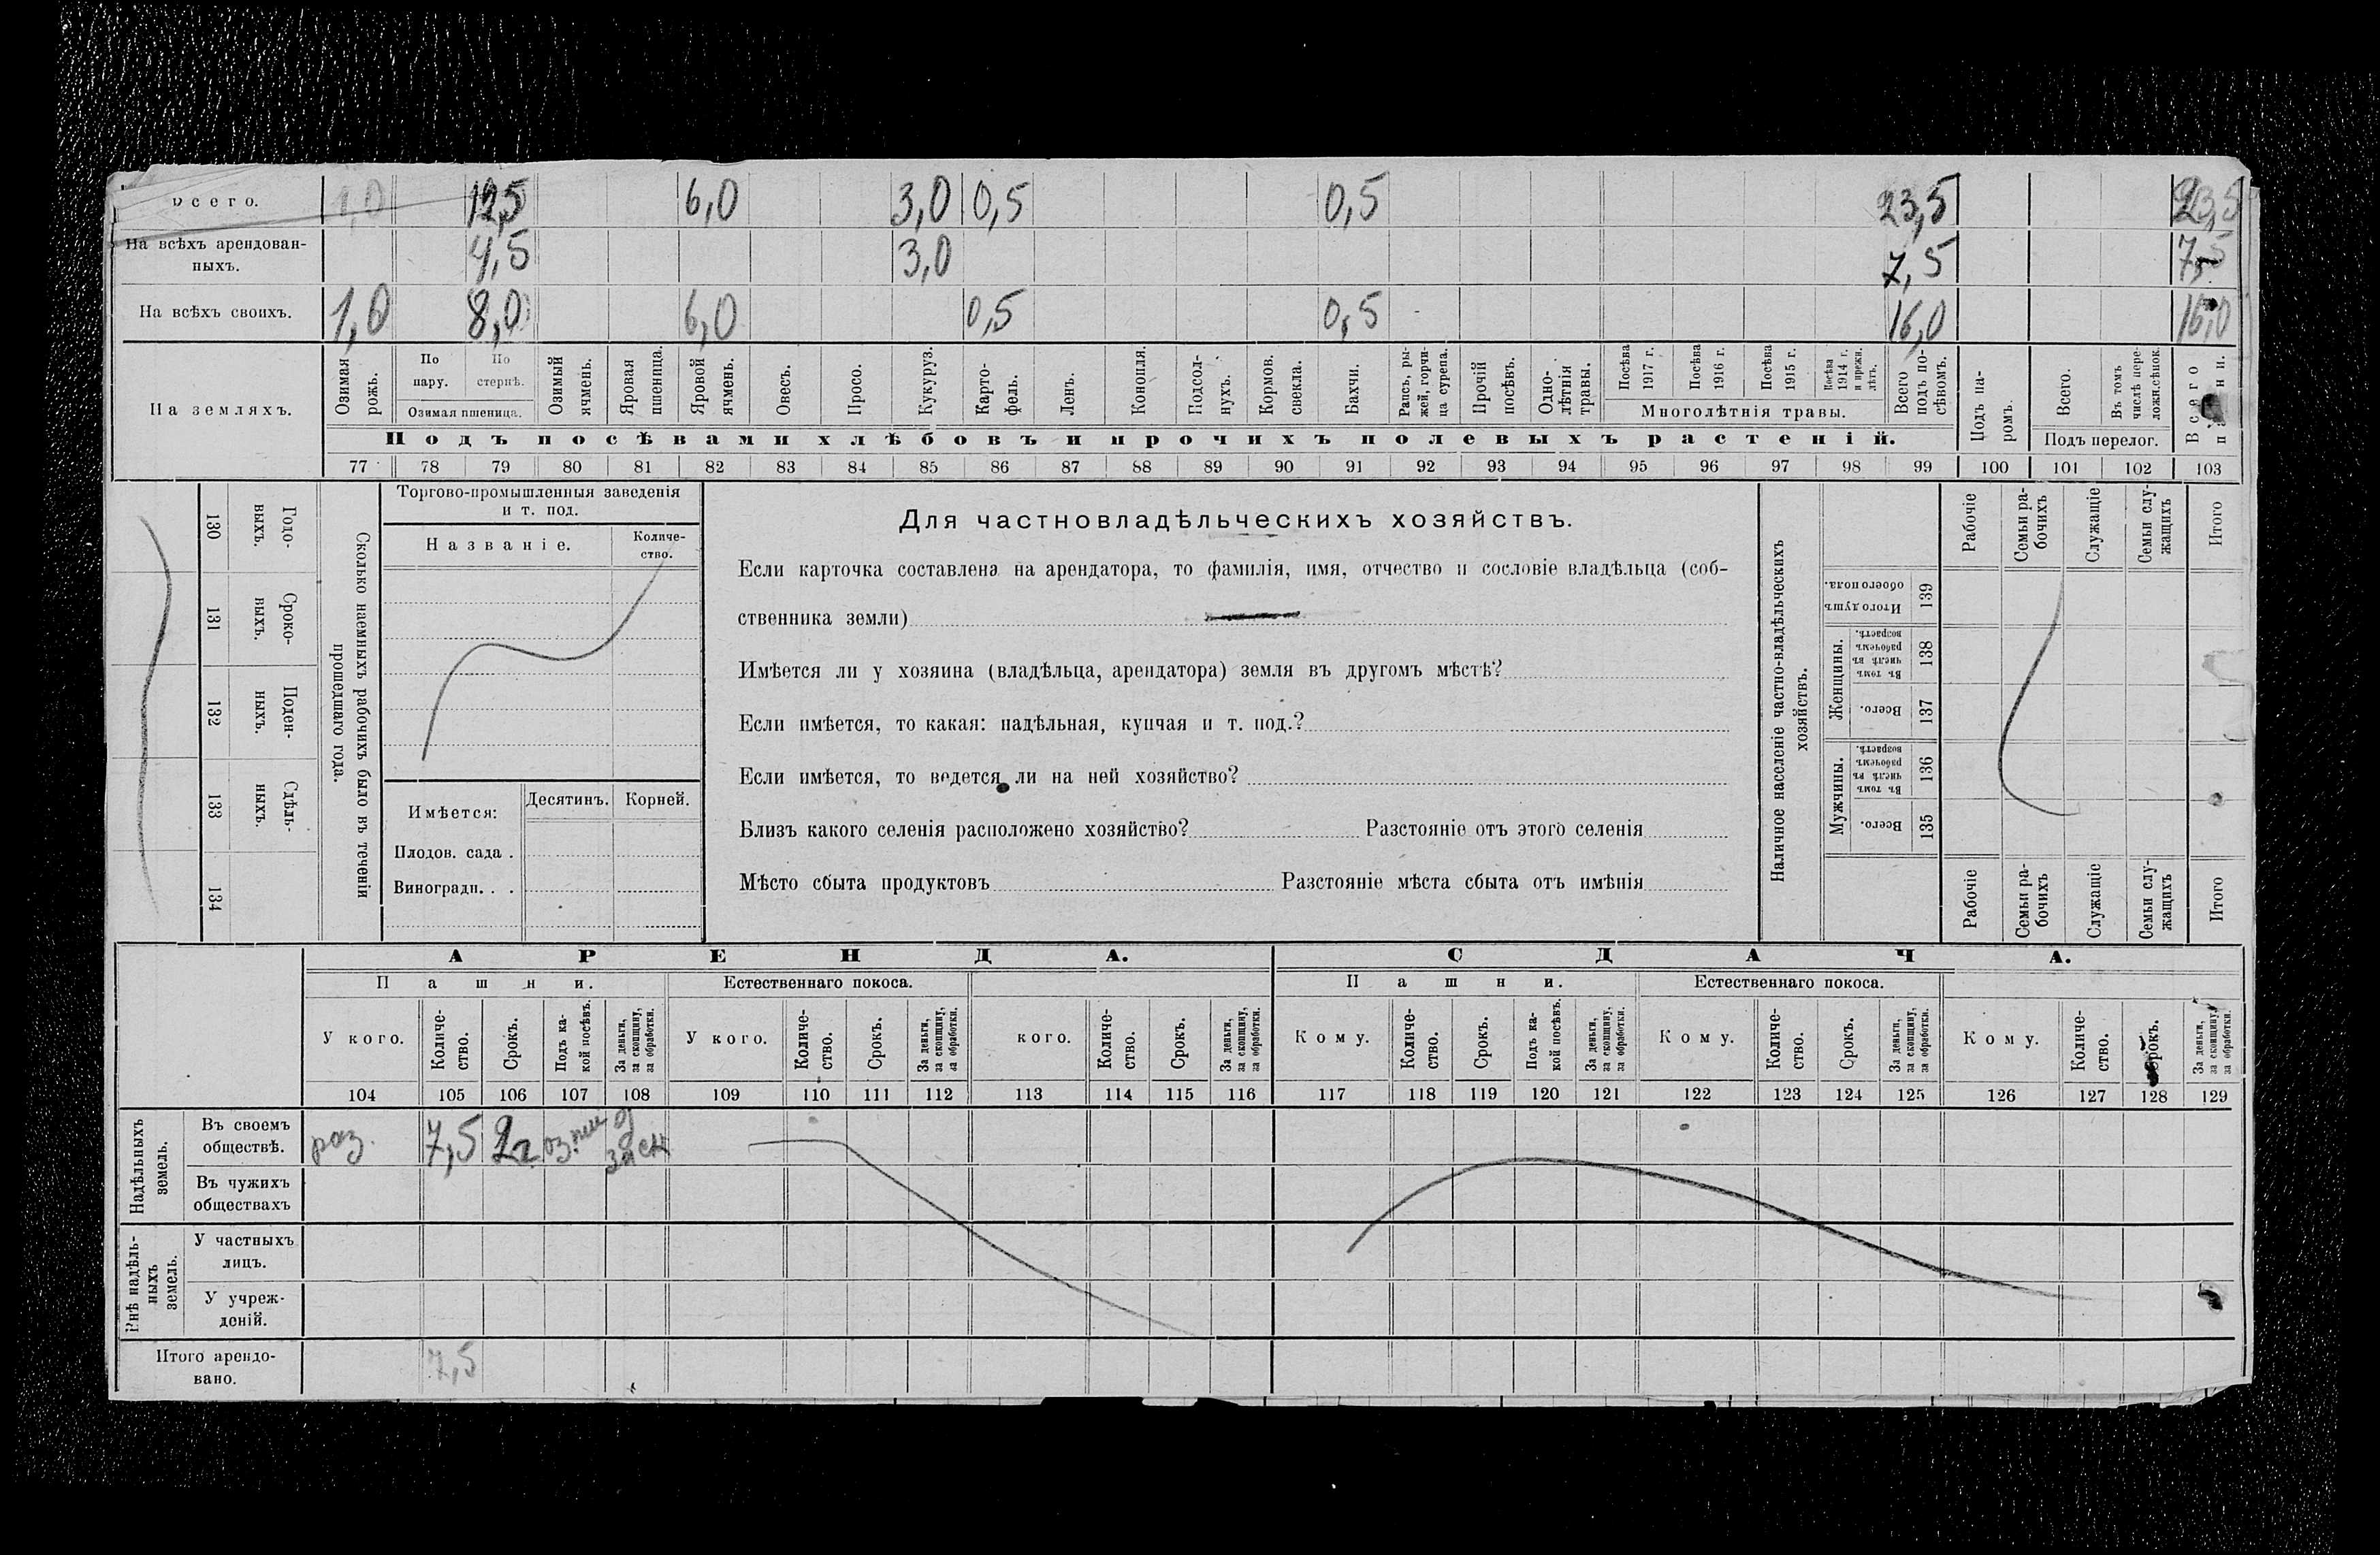 Всего. 1,0 12,5 6,0 3,0 0,5 0,5 23,5 23,5
На всѣхъ арендован-
ныхъ. 4,5 3,0 7,5 7,5
На всѣхъ своихъ. 1,0 8,0 6,0 0,5 0,5 16,0 16,0
На земляхъ.
Озимая рожь.
По пару.
По стернѣ.
Озимая пшеница.
Озимый ячмень.
Яровая пшеница.
Яровой ячмень.
Овесъ.
Просо.
Кукуруз.
Карто-
фель.
Ленъ.
Конопля.
Подсол-
нухъ.
Кормов. свекла.
Бахчи.
Рапсъ, ры-
жей, горчи-
ца сурепа.
Прочій посѣвъ.
Одно-
лѣтнія травы.
Посѣва 1917 г.
Посѣва 1916 г.
Посѣва 1915 г.
Посѣва 1914 г. и прежн. лѣтъ.
Многолѣтнія травы.
Всего подъ по-
сѣвомъ.
Подъ па-
ромъ.
Всего.
Въ томъ числѣ пере-
ложн. сѣнок.
Подъ перелог.
Всего пашни.
Подъ посѣвами хлѣбовъ и прочихъ полевыхъ растеній.
77 78 79 80 81 82 83 84 85 86 87 88 89 90 91 92 93 94 95 96 97 98 99 100 101 102 103
130 Годо-
выхъ.
131 Сроко-
выхъ.
132 Поден-
ныхъ.
133 Сдѣль-
ныхъ.
134
Сколько наемныхъ рабочихъ было въ теченіи
прошедшаго года.
Торгово-промышленныя заведенія
и т. под.
Названіе.
Количе-
ство.
Имѣется: Десятинъ. Корней.
Плодов. сада .
Виноградн. . .
Для частновладѣльческихъ хозяйствъ.
Если карточка составлена на арендатора, то фамилія, имя, отчество и сословіе владѣльца (соб-
ственника земли)
Имѣется ли у хозяина (владѣльца, арендатора) земля въ другомъ мѣстѣ?
Если имѣется, то какая: надѣльная, купчая и т. под.?
Если имѣется, то ведется ли на ней хозяйство?
Близъ какого селенія расположено хозяйство? Разстояніе отъ этого селенія
Мѣсто сбыта продуктовъ Разстояніе мѣста сбыта отъ имѣнія
Наличное населеніе частно-владѣльческихъ
хозяйствъ.
Рабочіе
Семьи ра-
бочихъ
Служащіе
Семьи слу-
жащихъ
Итого
Итого душъ обоего пола. 139
Женщины.
Въ томъ числѣ въ рабочемъ возрастѣ. 138
Всего. 137
Мужчины.
Въ томъ числѣ въ рабочемъ возрастѣ. 136
Всего. 135
Рабочіе
Семьи ра-
бочихъ
Служащіе
Семьи слу-
жащихъ
Итого
АРЕНДА. СДАЧА.
Пашни. Естественнаго покоса. Пашни. Естественнаго покоса.
У кого.
Количе-
ство.
Срокъ.
Подъ ка-
кой посѣвъ.
За деньги,
за скопщину,
за обработки.
У кого.
Количе-
ство.
Срокъ.
За деньги,
за скопщину,
за обработки.
кого.
Количе-
ство.
Срокъ.
За деньги,
за скопщину,
за обработки.
Кому.
Количе-
ство.
Срокъ.
Подъ ка-
кой посѣвъ.
За деньги,
за скопщину,
за обработки.
Кому.
Количе-
ство.
Срокъ.
За деньги,
за скопщину,
за обработки.
Кому.
Количе-
ство.
Срокъ.
За деньги,
за скопщину,
за обработки.
104 105 106 107 108 109 110 111 112 113 114 115 116 117 118 119 120 121 122 123 124 125 126 127 128 129
Надѣльныхъ
земель.
Въ своемъ
обществѣ. раз. 7,5 2г
Въ чужихъ
обществахъ
Внѣ надѣль-
ныхъ
земель.
У частныхъ
лицъ.
У учреж-
деній.
Итого арендо-
вано. 7,5